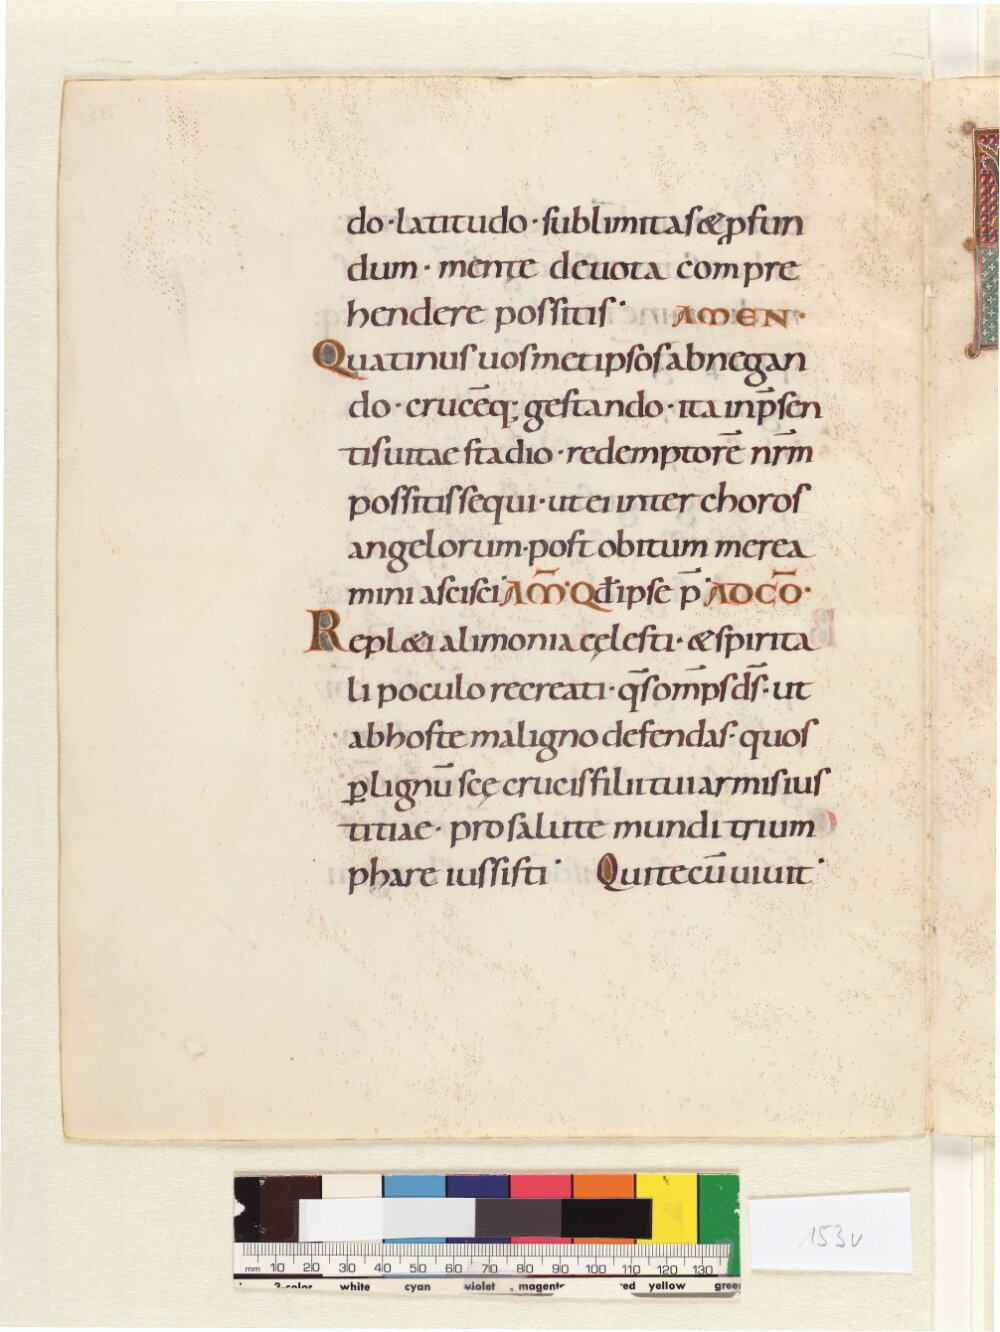 do · latitudo · sublimitas & ꝓfun
dum · mente deuota compre
hendere possitis · AMEN ·
Quatinus uosmetipsos abnegan
do · crucēq; gestando · ita in p̄sen
tis uitae stadio · redemptorē nr̄m
possitis sequi · ut ei inter choros
angelorum · post obitum merea
mini ascisci AM̄ · Qđ ipse p̄ AD CŌ ·
Repl&i alimonia cęlesti · & spirita
li poculo recreati · q̄s om̄ps ds̄ · ut
ab hoste maligno defendas · quos
ꝑ lignū scę crucis filii tui armis ius
titiae · pro salute mundi trium
phare iussisti · Qui tecū uiuit ·
153v
mm 10 20 30 40 50 60 70 80 90 100 110 120 130
3-color white cyan violet magenta red yellow green